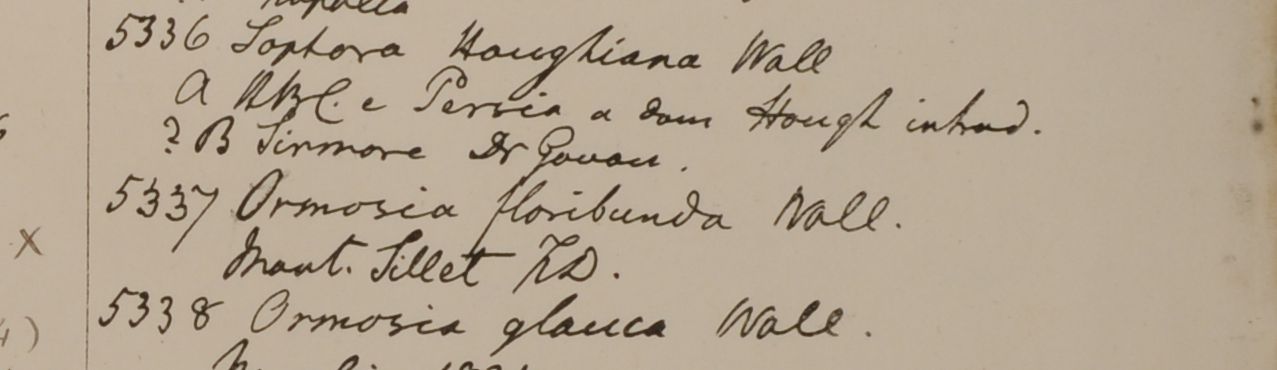 5336 Sophora Houghiana Wall
A HBC. e Persia a dom Hough introd.
? B Sirmore Dr Govan.
5337 Ormosia floribunda Wall.
Mont. Sillet FD.
5338 Ormosia glauca Wall.
x
4)